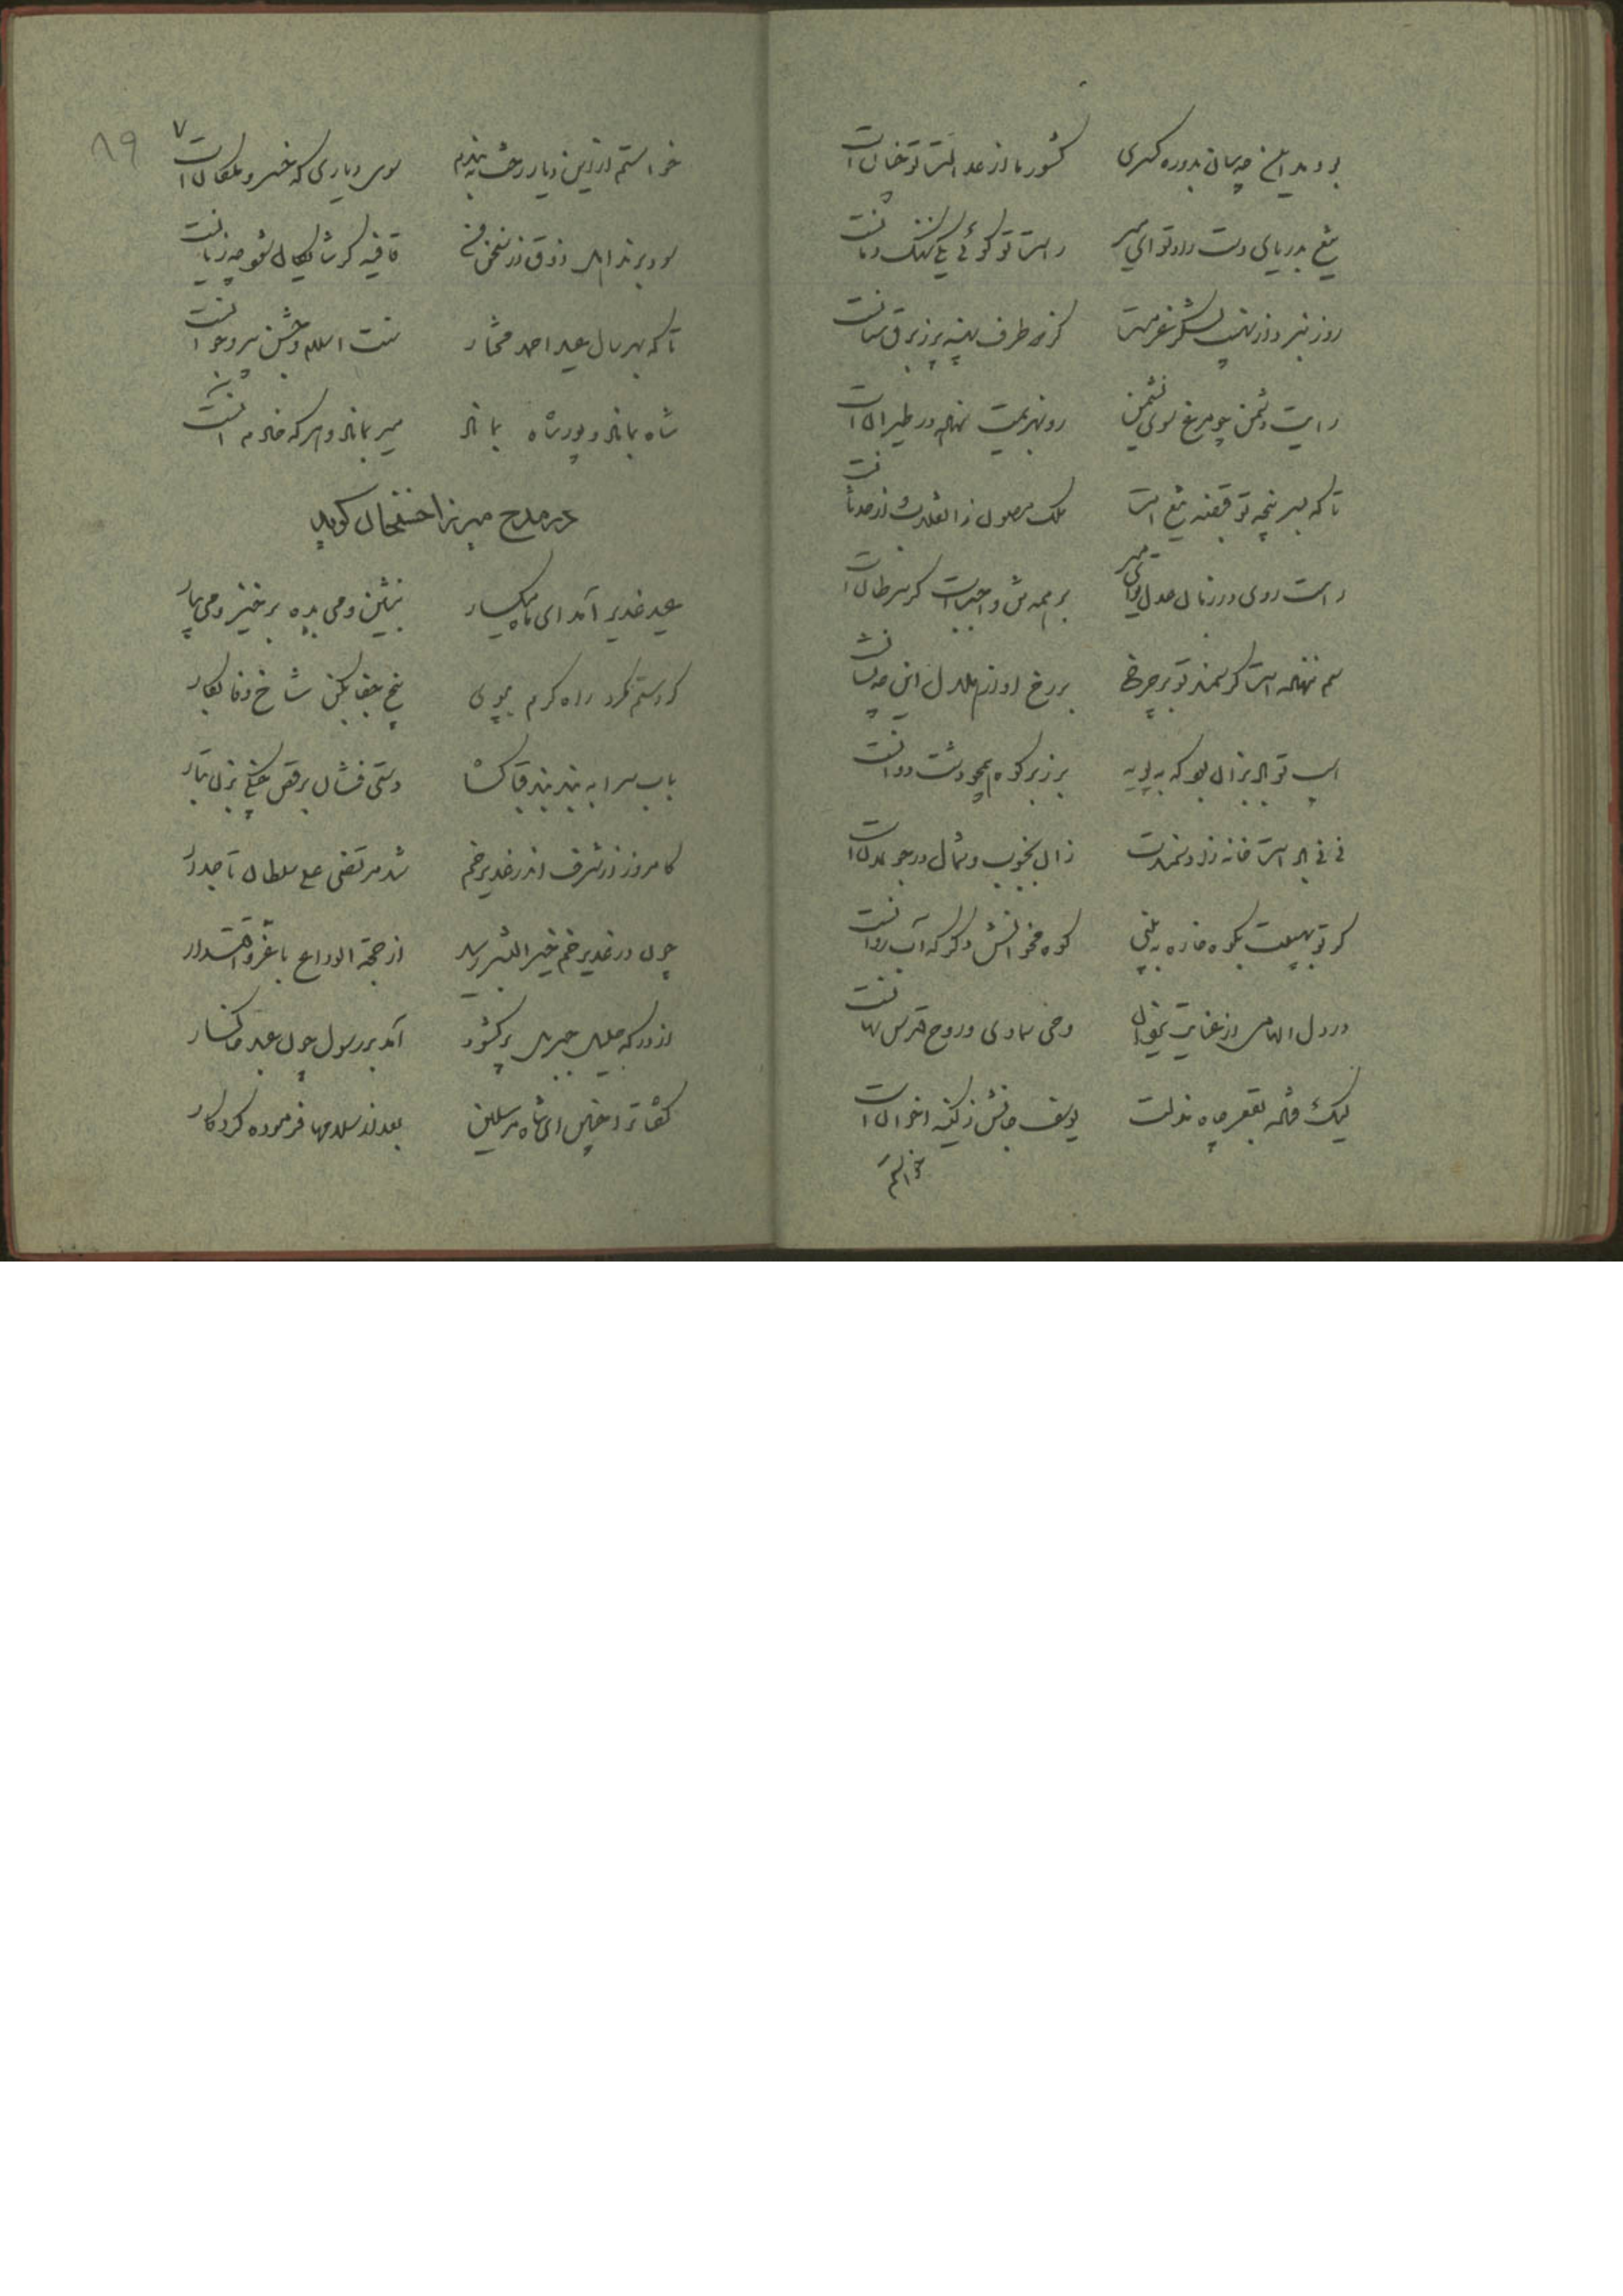 بود مداین چه سان بدوره کسری کشور ما از عدالت تو چنان است
تیغ بدریای دست راد تو ای میر راست تو گوئی یکی نهنگ دمانست
روز نبرد از نهیب لشکر نصرت کز هر طرف پهنه پر ز برق سنانست
رایت دشمن چو مرغ سوی نشیمن رو بهزیمت نهاده در طیران است
تا که بسر پنجه تو قبضه تیغ است ملک مصون ز انقلاب از حدثانست
راست روی در زمان عدل تو ای میر بر همه کس واجبست گر سرطان است
سم نهاده است گر سمند تو بر چرخ بر رخ او از هلال این چه نشانست
اسب تو البرز سان بود که به پویه بر زبر کوه همچو دشت دوانست
نی نی باد است خانه زاد سمندت زان بجنوب و شمال در جولان است
گر تو بهیبت بکوه خاره به بینی کوه مخوانش دگر که آب روانست
در دل الهامی از عنایت یزدان وحی سماوی و روح قدس نهانست
لیک فتاده بقعر چاه مذلت یوسف جانش ز کینه اخوان است
خواستم
۸۹
خواستم از این دیار رخت به بندم سوی دیاری که خسرو ملکان است
سود برند اهل ذوق از سخن من قافیه گر شایگان شود چه زیانست
تا که بهر سال عید احمد مختار سنت اسلام و جشن پیر و جوانست
شاه بماناد و پور شاه بماناد میر بماناد و هر که خادم آنست
در مدح میرزا حسنخان گوید
عید غدیر آمد ای ماه میگسار بنشین و می بده برخیز و می بیار
گردستم نکرد راه کرم بپوی بیخ جفا بکن شاخ وفا بکار
باب سرا به بند بند قبا گشا دستی فشان برقص چنگی بزن بتار
کامروز از شرف اندر غدیر خم شد مرتضی علی سلطان تاجدار
چون در غدیر خم خیر البشر رسید از حجة الوداع با عز و اقتدار
از درگه جلیل جبریل پر گشود آمد بر رسول چون عبد خاکسار
گفتا ترا چنین ای شاه مرسلین بعد از سلامها فرموده کردگار